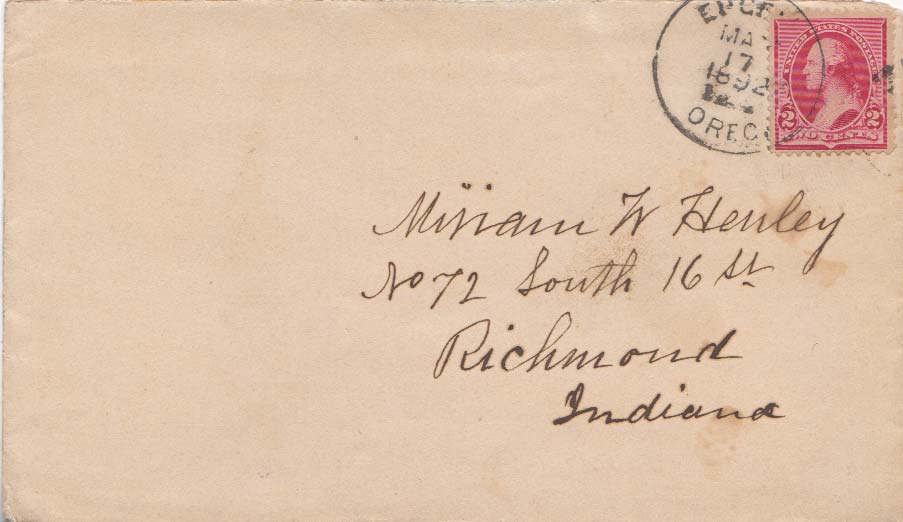 MA
17
1892
OREG
UNITED STATES POSTAGE
2 2
TWO CENTS
Miriam W Henley
No 72 South 16 St
Richmond
Indiana